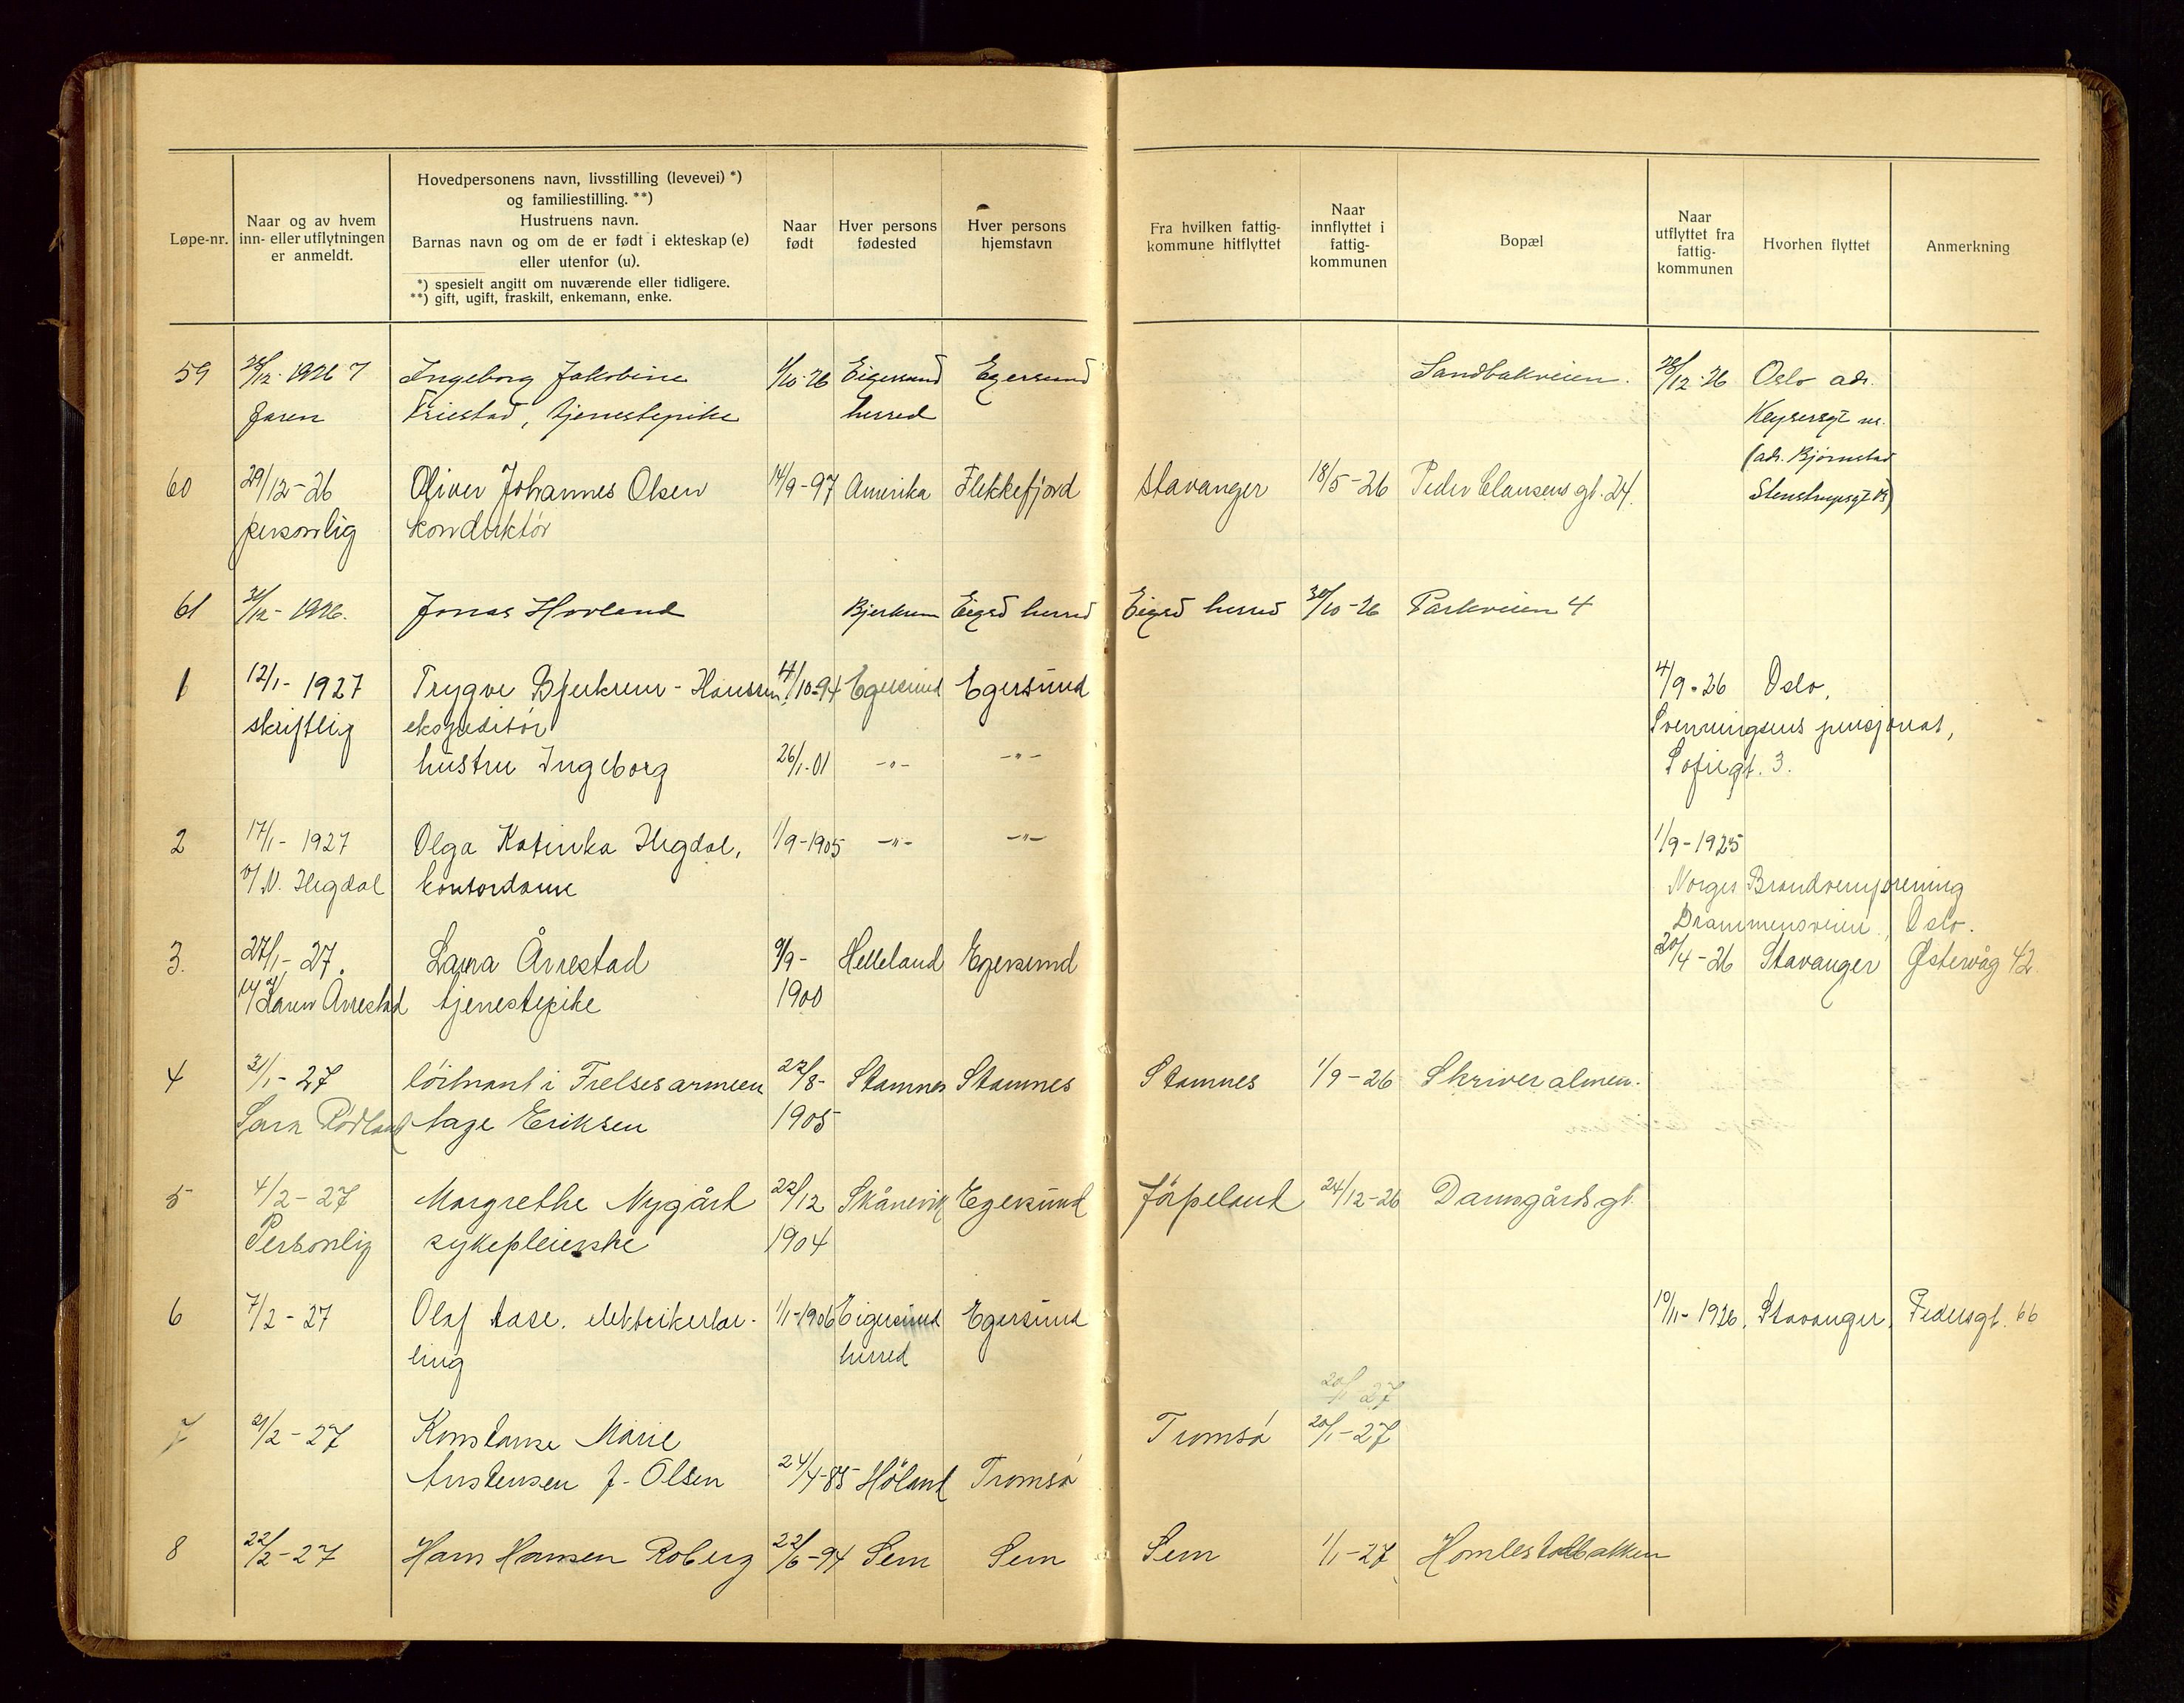 Løpe-nr.
Naar og av hvem
inn- eller utflytningen
er anmeldt.
Hovedpersonens navn, livsstilling (levevei) *)
og familiestilling. **)
Hustruens navn.
Barnas navn og om de er født i ekteskap (e)
eller utenfor (u).
*) spesielt angitt om nuværende eller tidligere.
**) gift, ugift, fraskilt, enkemann, enke.
Naar
født
Hver persons
fødested
Hver persons
hjemstavn
Fra hvilken fattig-
kommune hitflyttet
Naar
innflyttet i
fattig-
kommunen
Bopæl
Naar
utflyttet fra
fattig-
kommunen
Hvorhen flyttet
Anmerkning
59 28/12-1926 Ingeborg Jakobine 1/10-26 Eigersund Egersund Sandbakveien. 28/12-26 Oslo adr.
faren Friestad, tjenestepike herred Keysersgt
(adr. Bjørnstad
60 29/12-26 Oliver Johannes Olsen 14/9-97 Amerika Flekkefjord Stavanger 18/5-26 Peder Clausens gt. 24. Stenstrupsgt
personlig konduktør
61 31/12-1926. Jonas Hovland Bjerkrem Eigsd herred Eigsd herred 30/10-26 Parkveien 4
1 12/1-1927 Trygve Bjerkrem-Hanssen, 4/10-94 Egersund Egersund 4/9-26 Oslo,
skriftlig ekspeditør Svenningsens pensjonat,
hustru Ingeborg 26/1-01 -"- -"- Sofiegt. 3.
2 17/1-1927 Olga Katinka Hegdal, 1/9-1905 -"- -"- 1/9-1925
v/ N. Hegdal kontordame Norges Brandvernforening
Drammensveien, Oslo.
3. 27/1-27. Laura Årrestad 9/9- Helleland Egersund 20/4-26 Stavanger Østervåg 42
Karen Årrestad tjenestepike 1900
4 31/1-27 løitnant i Frelsesarmeen 22/8- Stamnes Stamnes Stamnes 1/9-26 Skriveralmen.
Sara Rødland Aage Eriksen 1905
5 4/2-27 Margrethe Nygård 22/12 Skånevik Egersund Jørpeland 24/12-26 Damsgårds gt.
Personlig sykepleierske 1904
6 7/2-27 Olaf Aase. elektrikerlær- 1/1-1906 Eigersund Egersund 10/11-1926, Stavanger, Pedersgt. 66
ling herred
20/1 27
7 21/2-27 Konstanse Marie Tromsø 20/1-27
Austensen f. Olsen 24/4-85 Höland Tromsø
8 22/2-27 Hans Hansen Roberg 22/6-94 Sem Sem Sem 1/1-27 Homlestadbakken